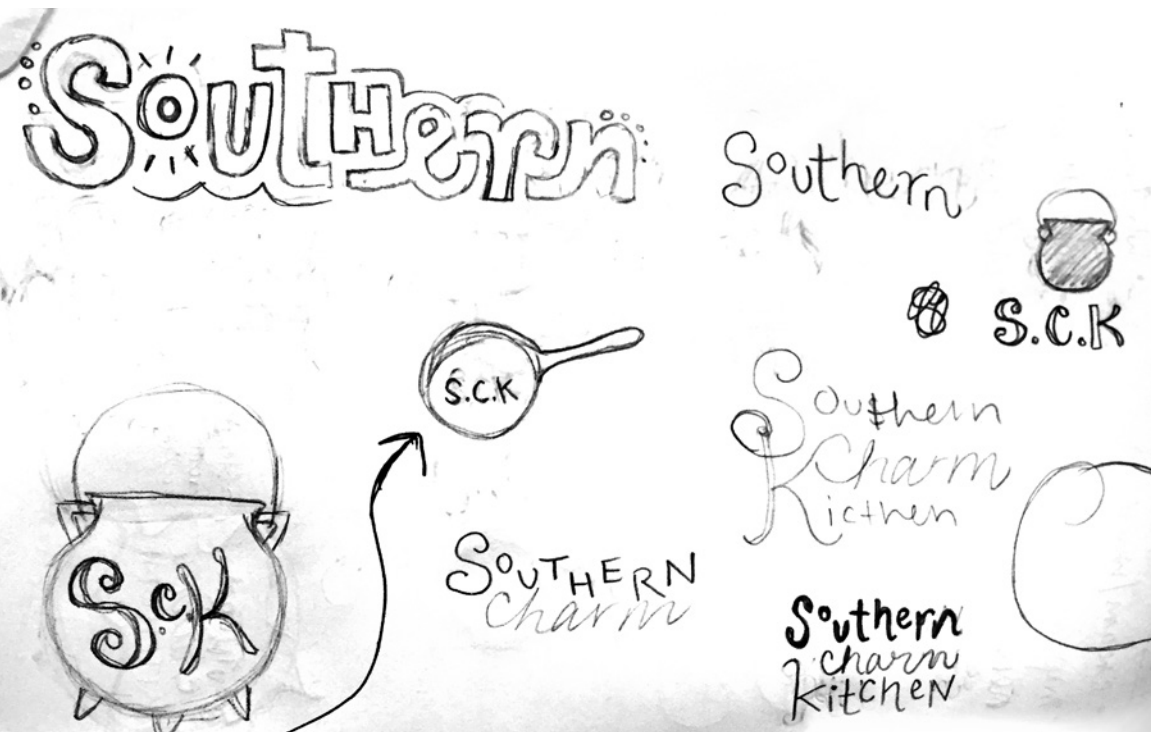 Southern
Southern
S.C.K
S.C.K
Southern
Charm
Kicthen
ScK
SOUTHERN
charm
Southern
charm
KitcheN